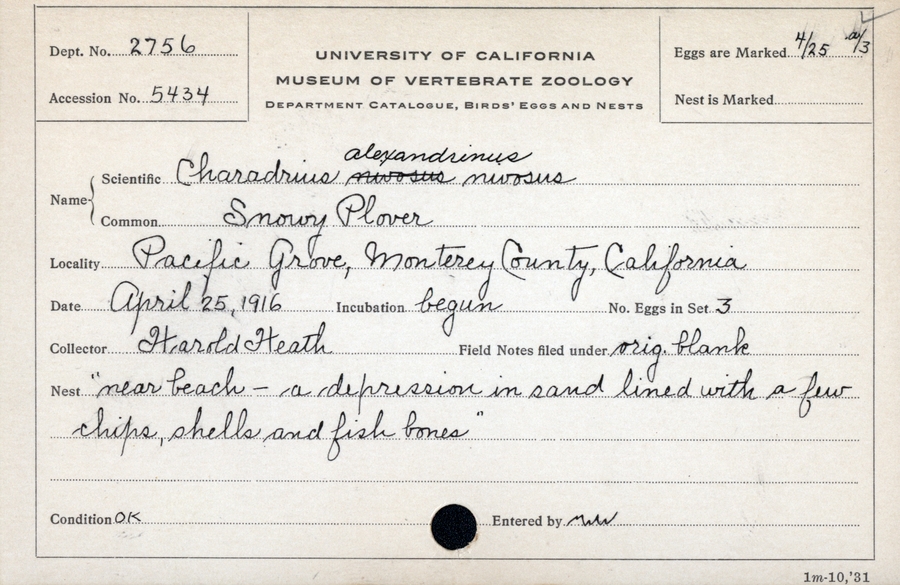 Dept. No. 2756
Accession No. 5434
UNIVERSITY OF CALIFORNIA
MUSEUM OF VERTEBRATE ZOOLOGY
DEPARTMENT CATALOGUE, BIRDS' EGGS AND NESTS
Eggs are Marked 4/25 a/3
Nest is Marked
alexandrinus
Name Scientific Charadrius nivosus nivosus
Common Snowy Plover
Locality Pacific Grove, Monterey County, California
Date April 25, 1916 Incubation begun No. Eggs in Set 3
Collector Harold Heath Field Notes filed under orig. blank
Nest "near beach – a depression in sand lined with a few
chips, shells and fish bones"
Condition OK Entered by
1m-10,'31